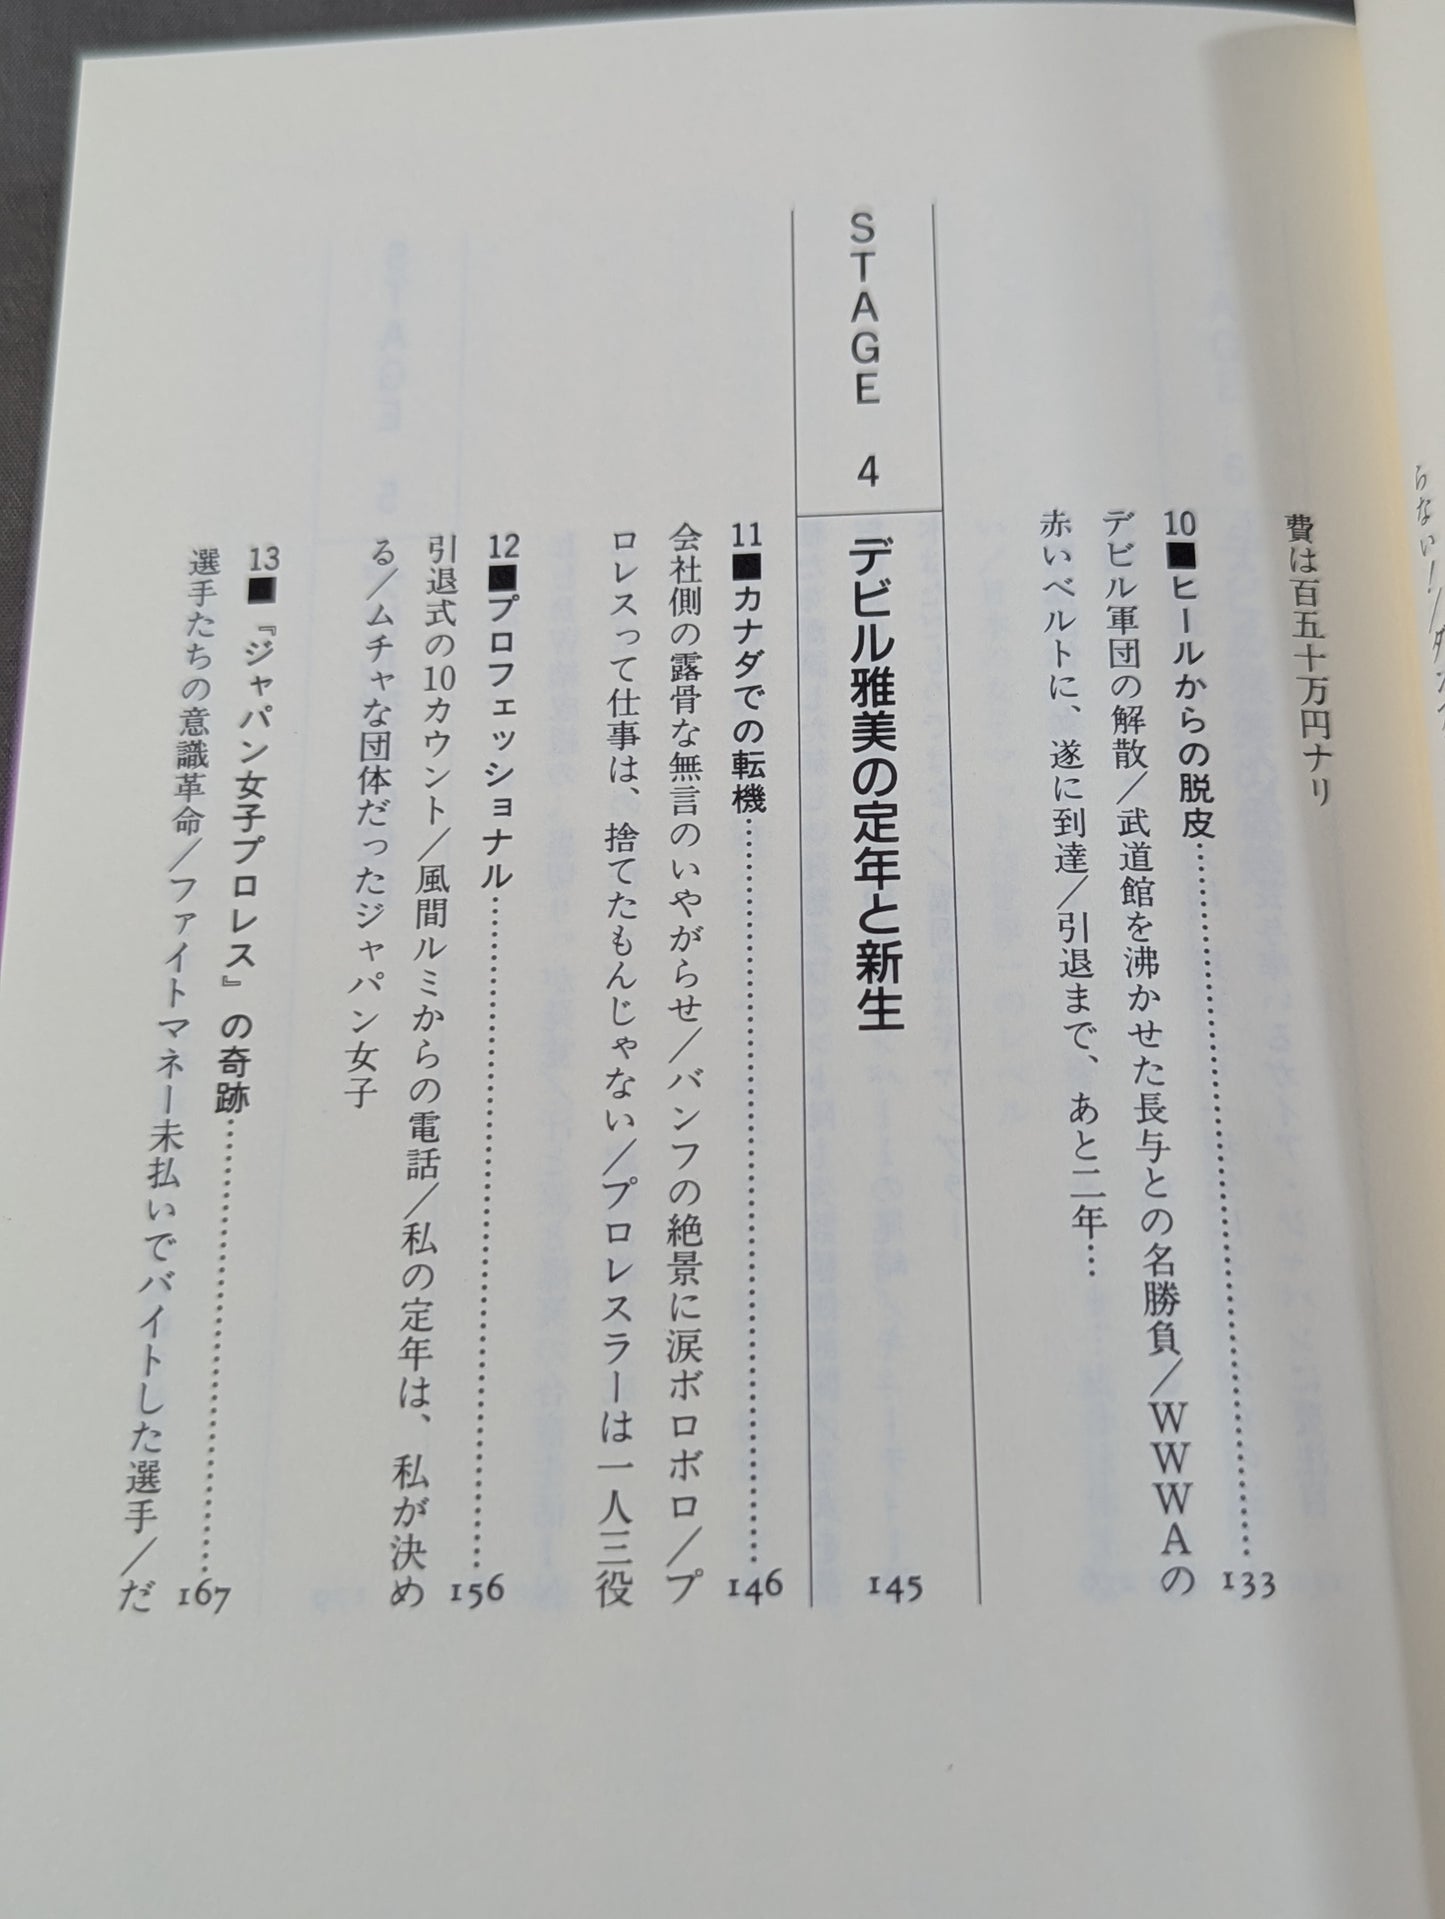 らない！／ダン
費は百五十万円ナリ
10■ヒールからの脱皮……………………133
デビル軍団の解散／武道館を沸かせた長与との名勝負／WWWAの
赤いベルトに、遂に到達／引退まで、あと二年……
STAGE 4 デビル雅美の定年と新生 145
11■カナダでの転機……………………146
会社側の露骨な無言のいやがらせ／バンフの絶景に涙ボロボロ／プ
ロレスって仕事は、捨てたもんじゃない／プロレスラーは一人三役
12■プロフェッショナル……………………156
引退式の10カウント／風間ルミからの電話／私の定年は、私が決め
る／ムチャな団体だったジャパン女子
13■『ジャパン女子プロレス』の奇跡……………………167
選手たちの意識革命／ファイトマネー未払いでバイトした選手／だ